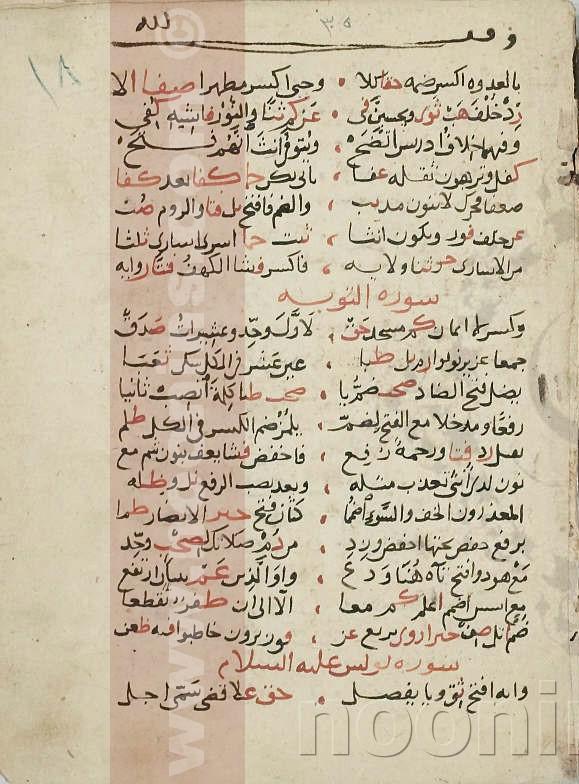 وقف لله
٣٥
١٨
بالعدوه اكسر ضمه حقا كلا . وحيى اكسر مظهرا صفا الا
رد خلف هب ثوى ويحسبن فى . عن كم ثنا والنور فاشيه كفى
وفيهما خلاف ادريس اتضح . ويتوفى انث انهم فتح
كفل وترهبون ثقله غفا . ثانى يكن حما كفا بعد كفا
ضعفا فحرك لا تنون مد ثب . والضم فافتح نل فتا والروم صب
عن خلف فوز ويكون انثا . ثبت حما اسرى اسارى ثلثا
من الاسارى حز ثنا ولايه . فاكسر فشا الكهف فتا روايه
سورة التوبه
وكسر لا ايمان كم مسجد حق . لاول وحد وعشيرات صدق
جمعا عزير نونوا رم نل ظبا . عين عشر فى الكل سكن ثغبا
يضل فتح الضاد صحب ضم يا . صحب ظبا كلمة انصب ثانيا
رفعا ومدخلا مع الفتح لضم . يلمز ضم الكسر فى الكل ظلم
يقبل رد فتا ورحمة رفع . فاخفض فشا يعف بنون سم مع
نون لدى انثى تعذب مثله . وبعد نصب الرفع نل وظله
المعذرون الخف والسوء اضمما . كثان فتح حبر الانصار ظما
برفع خفض تحتها اخفض وزد . من دم صلاتك لصحب وحد
مع هود وافتح تاه هنا ودع . واو الذين عم بنيان ارتفع
مع اسس اضمم اعلم كم معا . الا الى ان ظفر تقطعا
ضم اتل صف حبرا روى يزيغ عن . فوز يرون خاطبوا فيه ظعن
سورة يونس عليه السلام
وانه افتح ثق ويا يفصل . حق علا قضى سمى اجل
noonin